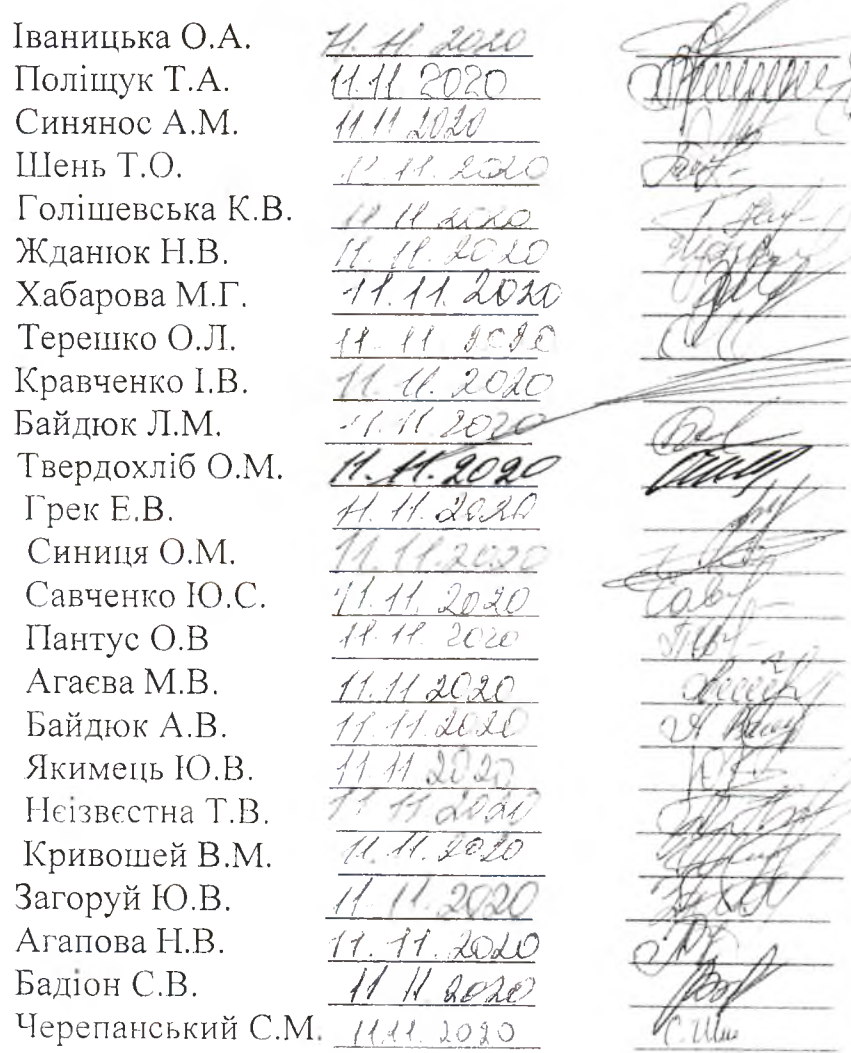 Іваницька О.А. 11.11.2020
Поліщук Т.А. 11.11 2020
Синянос А.М. 11.11 2020
Шень Т.О. 11.11.2020
Голішевська К.В. 11 11 2020
Жданюк Н.В. 11.11.2020
Хабарова М.Г. 11.11.2020
Терешко О.Л. 11.11 2020
Кравченко І.В. 11.11.2020
Байдюк Л.М. 11.11 2020
Твердохліб О.М. 11.11.2020
Грек Е.В. 11.11.2020
Синиця О.М. 11.11.2020
Савченко Ю.С. 11.11.2020
Пантус О.В 11.11.2020
Агаєва М.В. 11.11 2020
Байдюк А.В. 11.11.2020
Якимець Ю.В. 11.11 2020
Нєізвєстна Т.В. 11 11.2020
Кривошей В.М. 11.11.2020
Загоруй Ю.В. 11.11.2020
Агапова Н.В. 11.11.2020
Бадіон С.В. 11 11 2020
Черепанський С.М. 11.11.2020